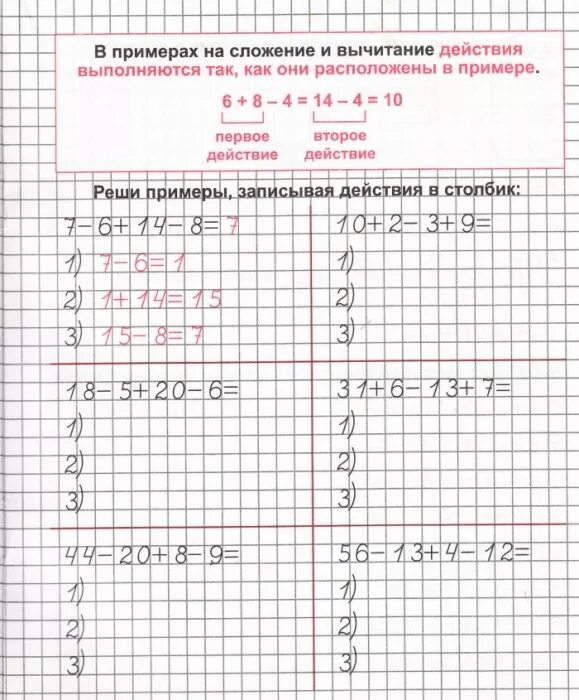 В примерах на сложение и вычитание действия
выполняются так, как они расположены в примере.
6 + 8 – 4 = 14 – 4 = 10
первое действие
второе действие
Реши примеры, записывая действия в столбик:
7–6+14–8=7
1) 7–6=1
2) 1+14=15
3) 15–8=7
10+2–3+9=
1)
2)
3)
18–5+20–6=
1)
2)
3)
31+6–13+7=
1)
2)
3)
44–20+8–9=
1)
2)
3)
56–13+4–12=
1)
2)
3)